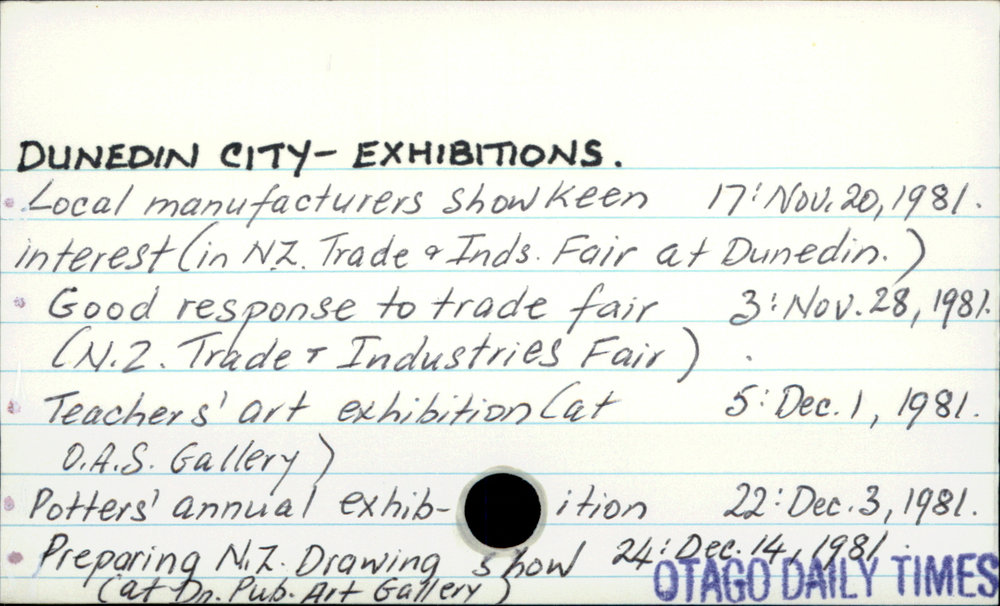 DUNEDIN CITY- EXHIBITIONS.
Local manufacturers show keen 17: Nov. 20, 1981.
interest (in N.Z. Trade & Inds. Fair at Dunedin.)
Good response to trade fair 3: Nov. 28, 1981.
(N.Z. Trade & Industries Fair)
Teachers' art exhibition (at 5: Dec. 1, 1981.
O.A.S. Gallery)
Potters' annual exhib- ition 22: Dec. 3, 1981.
Preparing N.Z. Drawing show 24: Dec. 14, 1981.
(at Dn. Pub. Art Gallery)
OTAGO DAILY TIMES